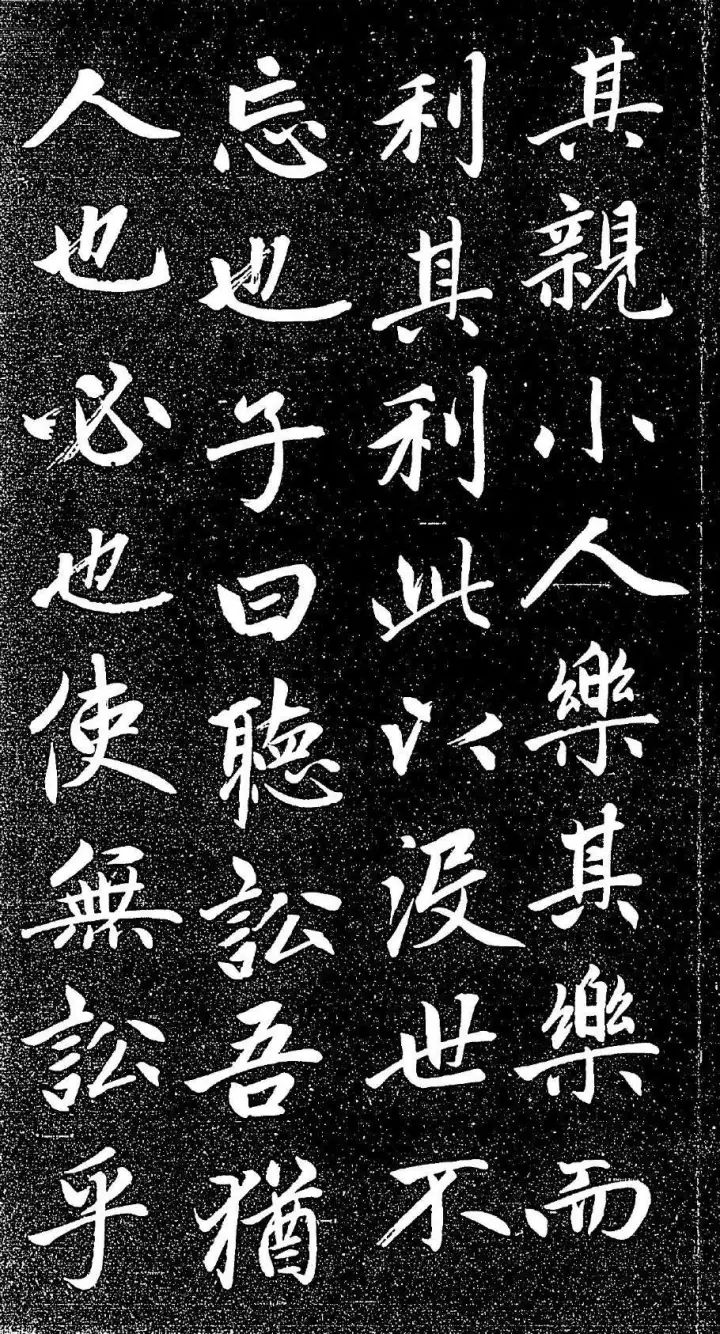 其親小人樂其樂而
利其利此以没世不
忘也子曰聽訟吾猶
人也必也使無訟乎